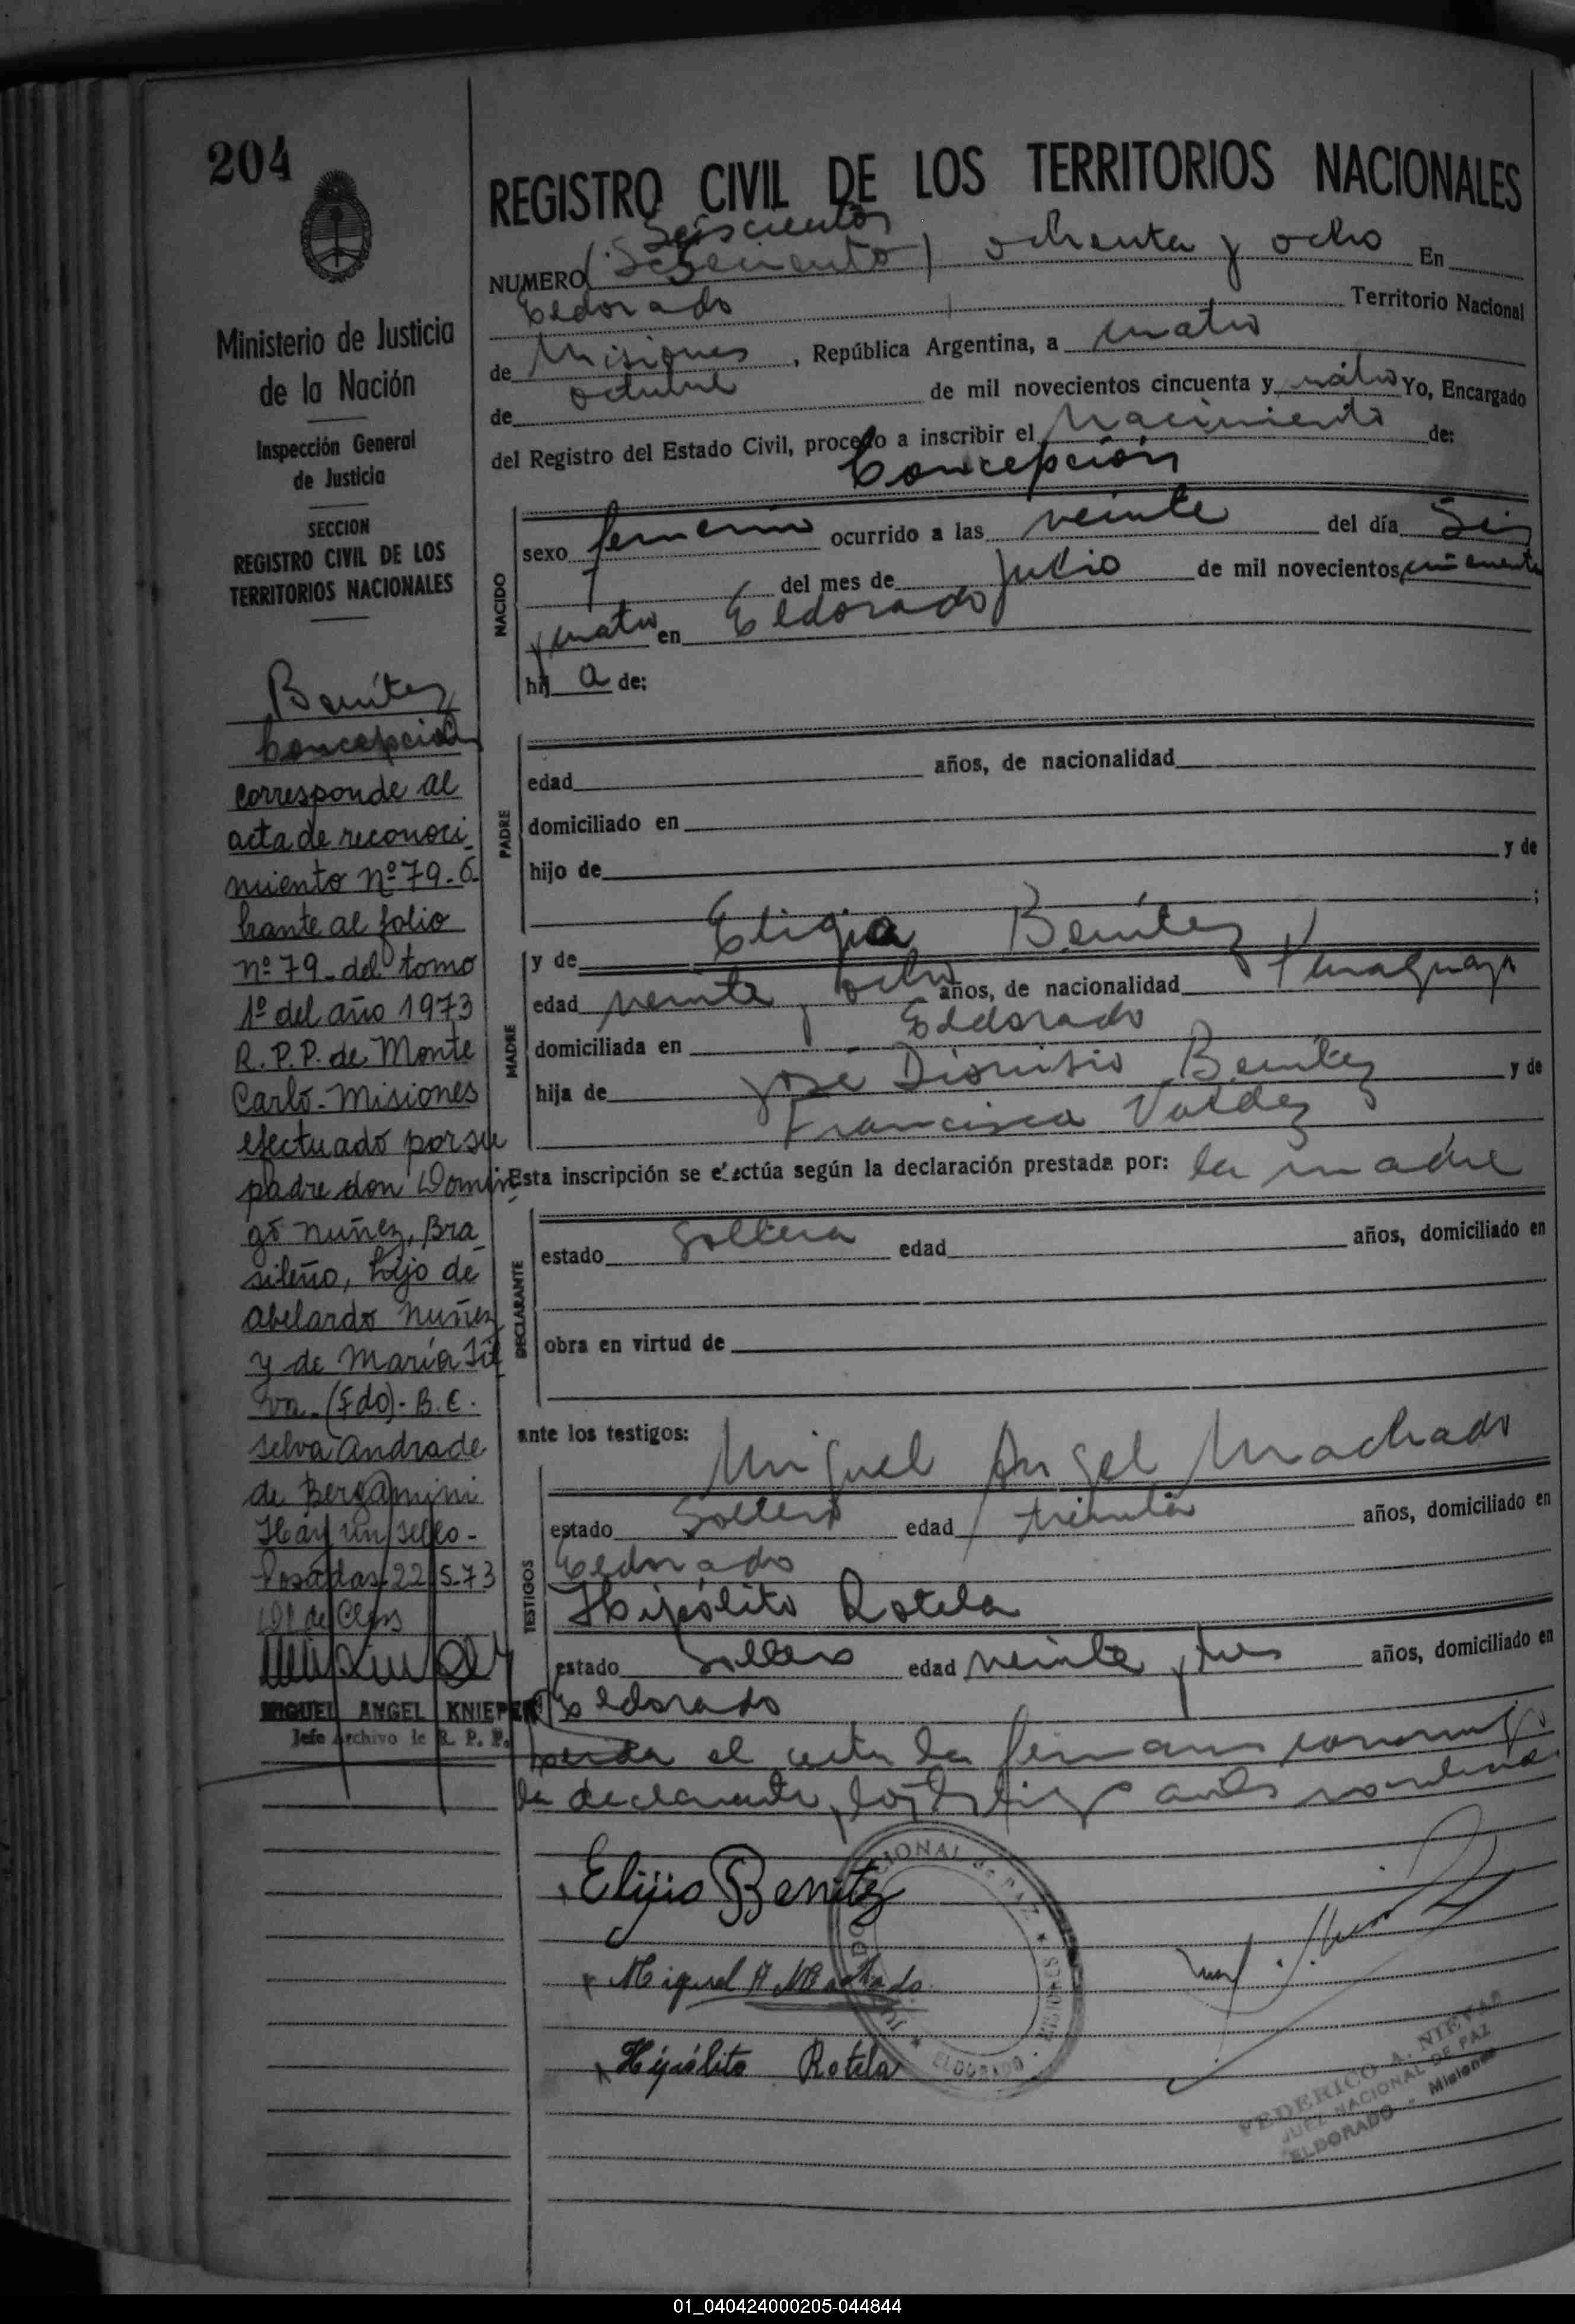 204
REGISTRO CIVIL DE LOS TERRITORIOS NACIONALES
Seiscientos
NUMERO ( ) ochenta y ocho En
Eldorado Territorio Nacional
de Misiones, República Argentina, a cuatro
de octubre de mil novecientos cincuenta y cuatro Yo, Encargado
del Registro del Estado Civil, procedo a inscribir el Nacimiento de:
Concepción
NACIDO
sexo femenino ocurrido a las veinte del día Seis
del mes de Julio de mil novecientos cincuenta
y cuatro en Eldorado
hij a de:
PADRE
edad años, de nacionalidad
domiciliado en
hijo de y de
;
MADRE
y de Eligia Benítez
edad veinte y ocho años, de nacionalidad Paraguaya
domiciliada en Eldorado
hija de José Dionisio Benítez y de
Francisca Valdez
Esta inscripción se efectúa según la declaración prestada por: la madre
DECLARANTE
estado Soltera edad años, domiciliado en
obra en virtud de
ante los testigos: Miguel Angel Machado
TESTIGOS
estado Soltero edad treinta años, domiciliado en
Eldorado
Hipólito Rotela
estado soltero edad veinte y tres años, domiciliado en
Eldorado
el acta la firman conmigo
la declarante y los testigos antes nombrados
Elijio Benitez
Miguel A Machado
Hipólito Rotela
NACIONAL de PAZ
ELDORADO - MISIONES
FEDERICO A. NIEVAS
JUEZ NACIONAL DE PAZ
ELDORADO - Misiones
Ministerio de Justicia
de la Nación
Inspección General
de Justicia
SECCION
REGISTRO CIVIL DE LOS
TERRITORIOS NACIONALES
Benítez
Concepción
corresponde al
acta de reconoci_
miento nº 79_o_
brante al folio
nº 79_ del tomo
1º del año 1973
R.P.P. de Monte
Carlo_ Misiones
efectuado por su
padre don Domin_
go Nuñez, Bra_
sileño, hijo de
Abelardo Nuñez
y de María Sil
va_(Fdo)- B.E.
Selva Andrade
de Bergamini
Hay un sello_
Posadas 22-5-73
MIGUEL ANGEL KNIEPER
Jefe Archivo de R. P. P.
01_040424000205-044844